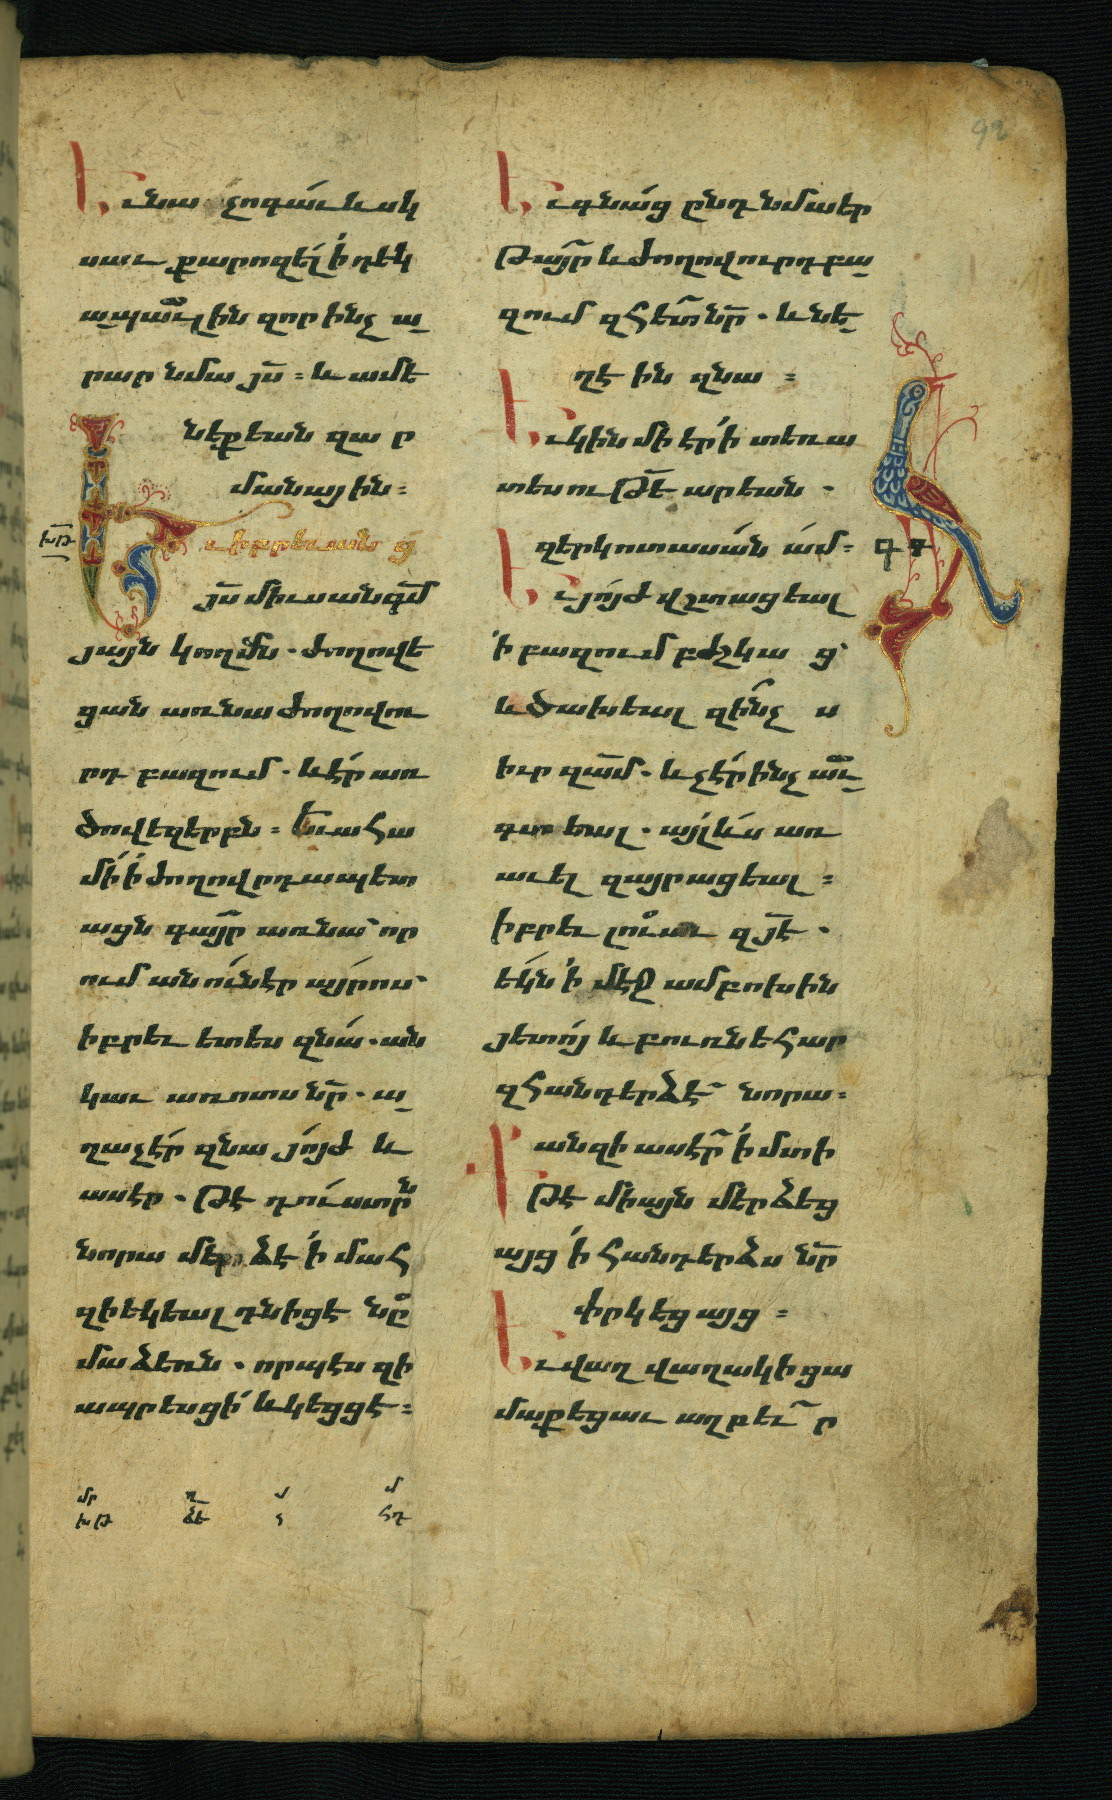 92
Եւ նա չոգաւ և սկ
սաւ քարոզել ի դեկ
ապաւլին զոր ինչ ա
րար նմա յս : և ամե
նեքեան զար
մանային :
Եւ իբրեւ անց
խթ
յս միւսանգմ
յայն կողմն . ժողովե
ցան առ նա ժողովու
րդ բազում . և էր առ
ծովեզերբն : Եւ ահա
մի ի ժողովրդապետ
ացն գայր առ նա՝ որ
ում անուն էր այրոս՝
իբրեւ ետես զնա . ան
կաւ առ ոտս նր . ա
ղաչէր զնա յոյժ և
ասէր . թէ դուստրն
նորա մերձ է ի մահ
զի եկեալ դնիցէ նր
մա ձեռն . որպէս զի
ապրեսցի և կեցցէ :
Եւ գնաց ընդ նմա եր
թայր և ժողովուրդ բա
զում զհետ նր . և նե
ղէին զնա :
Եւ կին մի էր ի տեռա
տեսութե արեան .
զերկոտասան ամ :
Եւ յոյժ վշտացեալ
ի բազում բժշկաց՝
և ծախեալ զինչ ս
իւր զամ . և չէր ինչ աւ
գտեալ . այլ ևս առ
աւել զայրացեալ :
իբրեւ լուաւ զյէ .
եկն ի մէջ ամբոխին
յետոյ և բուռն եհար
զհանդերձէ նորա :
Քանզի ասէր ի մտի
թէ միայն մերձեց
այց ի հանդերձս նր
փրկեցայց :
Եւ վաղվաղակի ցա
մաքեցաւ աղբեւր